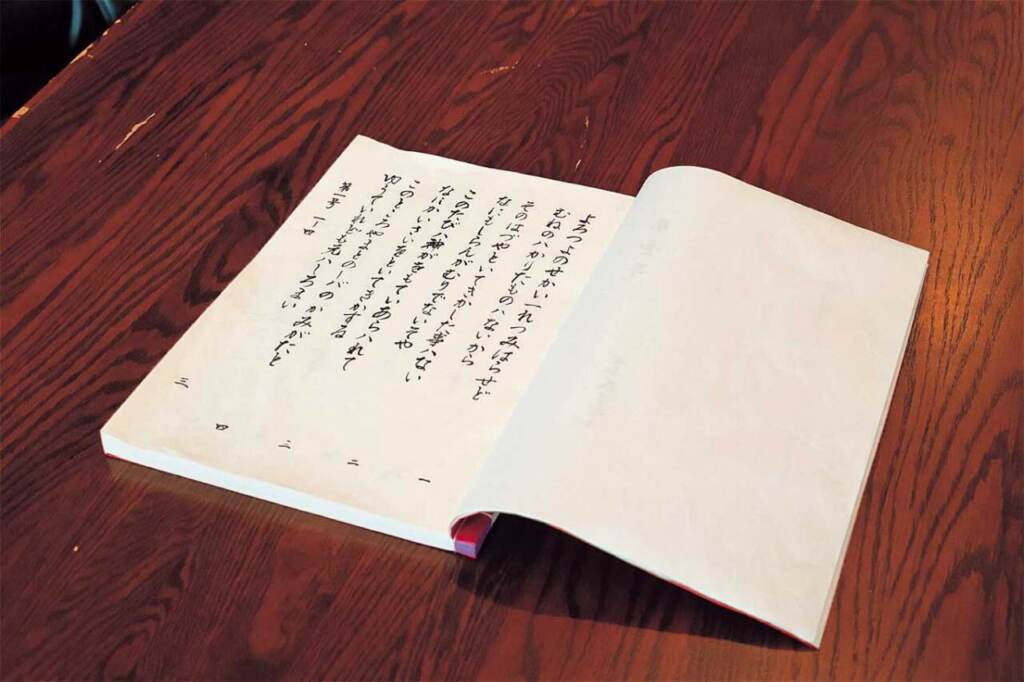 よろつよのせかい一れつみはらせど
むねのハかりたものハないから 一
そのはづやといてきかした事ハない
なにもしらんがむりでないそや 二
このたびハ神がをもていあらハれて
なにかいさいをといてきかする 三
このところやまとのしバのかみがたと
ゆうていれども元ハしろまい 四
第一号 一
三